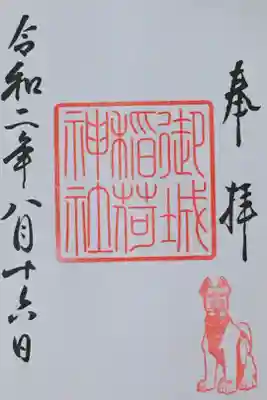 奉拝
御城
稲荷
神社
令和二年八月十六日